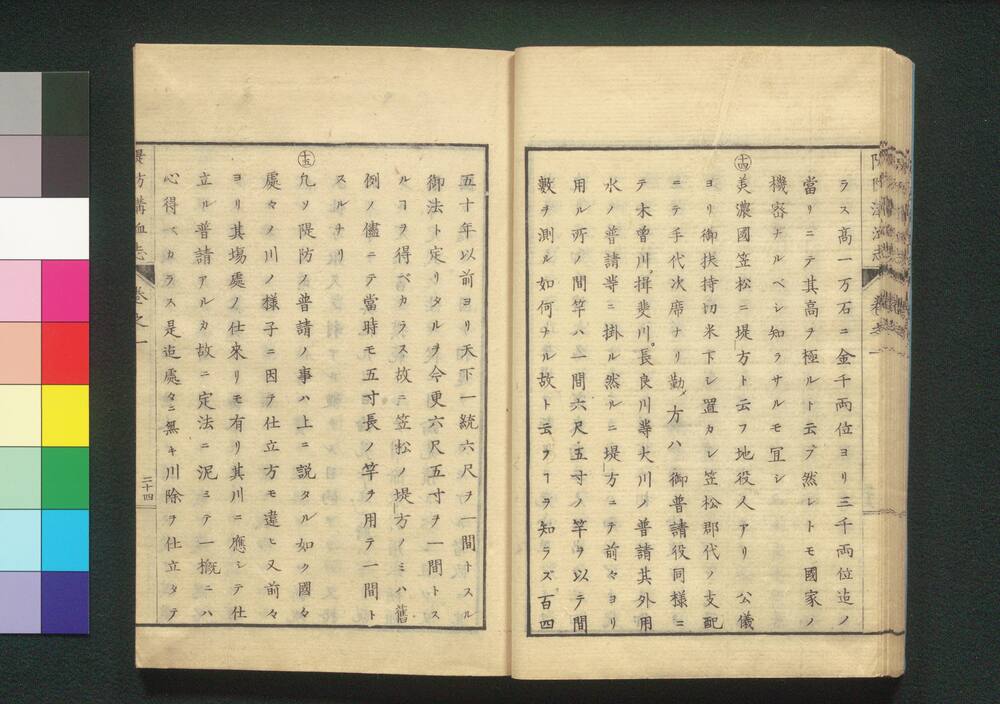 ラス高一万石ニ金千両位ヨリ三千両位迠ノ
當リニテ其高ヲ極ルト云フ然レトモ國家ノ
機宻ナルベシ知ラサルモ冝シ
十四
美濃國笠松ニ堤方ト云フ地役人アリ 公儀
ヨリ御扶持切米下シ置カレ笠松郡代ノ支配
ニテ手代次席ナリ勤メ方ハ 御普請役同様ニ
テ木曽川揖斐川長良川等大川ノ普請其外用
水ノ普請等ニ掛ル然ルニ堤方ニテ前々ヨリ
用ル所ノ間竿ハ一間六尺五寸ノ竿ヲ以テ間
數ヲ測ル如何ナル故ト云フヿヲ知ラズ百四
五十年以前ヨリ天下一統六尺ヲ一間トスル
御法ト定リタルヲ今更六尺五寸ヲ一間トス
ルヿヲ得ベカラス故ニ笠松ノ堤方ノミハ舊
例ノ儘ニテ當時モ五寸長ノ竿ヲ用テ一間ト
スルナリ
十五
凢ソ隄防ノ普請ノ事ハ上ニ説タル如ク國々
處々ノ川ノ様子ニ因テ仕立方モ違ヒ又前々
ヨリ其塲處ノ仕來リモ有リ其川ニ應シテ仕
立ル普請アルカ故ニ定法ニ泥ミテ一概ニハ
心得ベカラス是迠處々ニ無キ川除ヲ仕立タテ
防溝洫志 巻之一
二十四